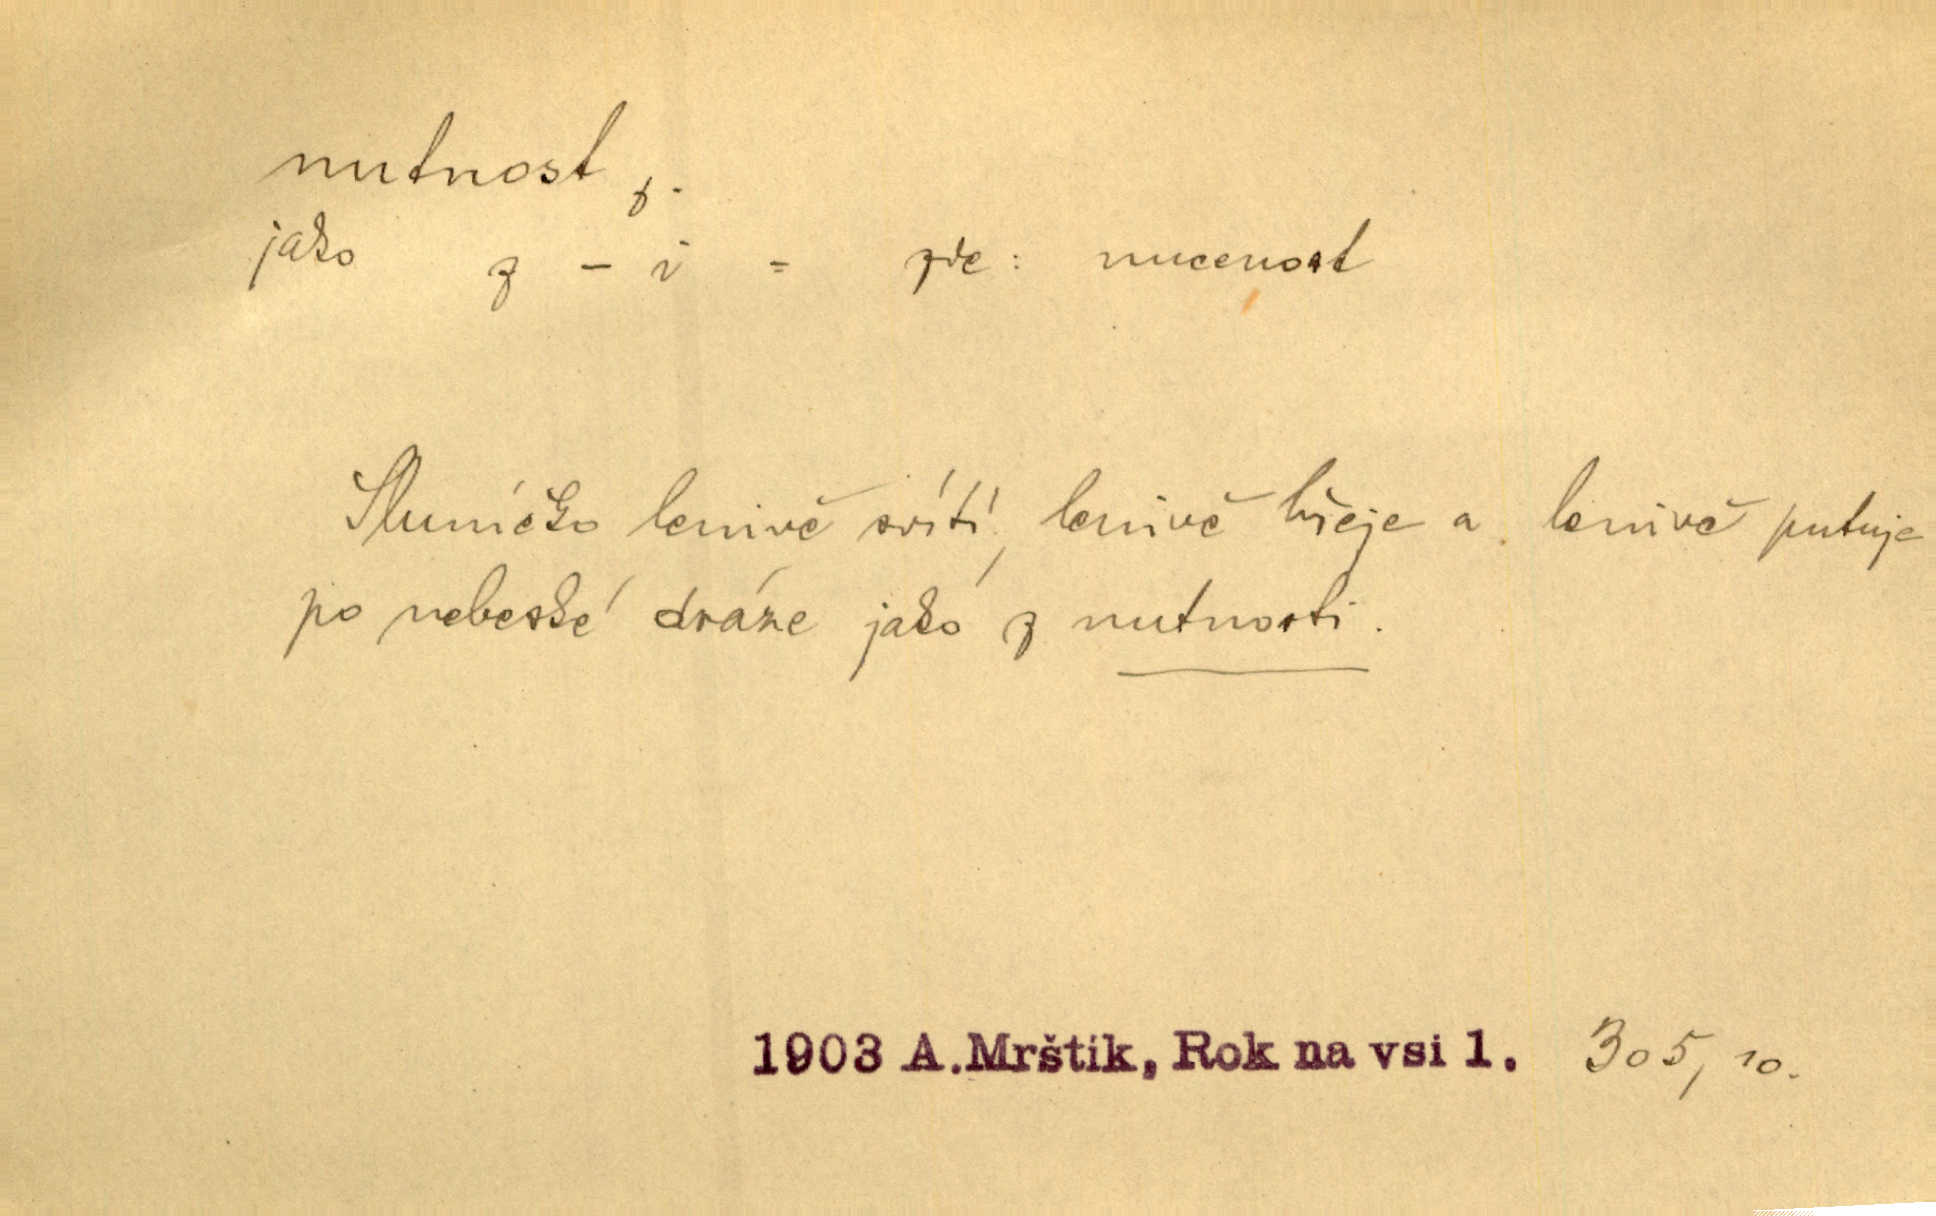 nutnost, f.
jako z – i = zde: nucenost
Sluníčko lenivě svítí, lenivě hřeje a lenivě putuje
po nebeské dráze jako z nutnosti.
1903 A. Mrštík, Rok na vsi 1. 305, 10.